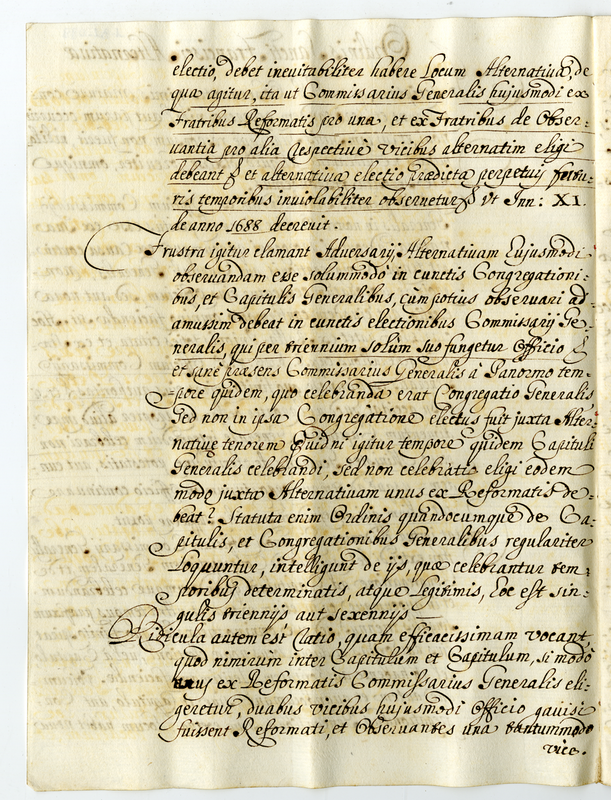 electio, debet inevitabiliter habere Locum Alternativa, de
qua agitur, ita ut Commissarius Generalis hujusmodi ex
Fratribus Reformatis pro una, et ex Fratribus de Obser-
vantia pro alia respectivè vicibus alternatim eligi
debeant & et alternativa electio prædicta perpetuis futu-
ris temporibus inviolabiliter observetur & ut Inn: XI.
de anno 1688 decrevit.
Frustra igitur clamant Adversarij Alternativam hujusmodi
observandam esse solummodò in cunctis Congregationi-
bus, et Capitulis Generalibus, cùm potius observari ad
amussim debeat in cunctis electionibus Commissarij Ge-
neralis, qui per triennium solùm suo fungetur Officio &
et sanè præsens Commissarius Generalis à Panormo tem-
pore quidem, quo celebranda erat Congregatio Generalis
sed non in ipsa Congregatione electus fuit juxta Alter-
nativæ tenorem Quidni igitur tempore quidem Capituli
Generalis celebrandi, sed non celebrati eligi eodem
modo juxta Alternativam unus ex Reformatis de-
beat? Statuta enim Ordinis quandocumque de Ca-
pitulis, et Congregationibus Generalibus regulariter
Loquuntur, intelligunt de ijs, quæ celebrantur tem-
poribus determinatis, atque Legitimis, hoc est sin-
gulis triennijs aut sexennijs —
Ridicula autem est ratio, quam efficacissimam vocant
quod nimirùm inter Capitulum et Capitulum, si modò
unus ex Reformatis Commissarius Generalis eli-
geretur, duabus vicibus hujusmodi Officio gavisi
fuissent Reformati, et Observantes una tantummodo
vice.